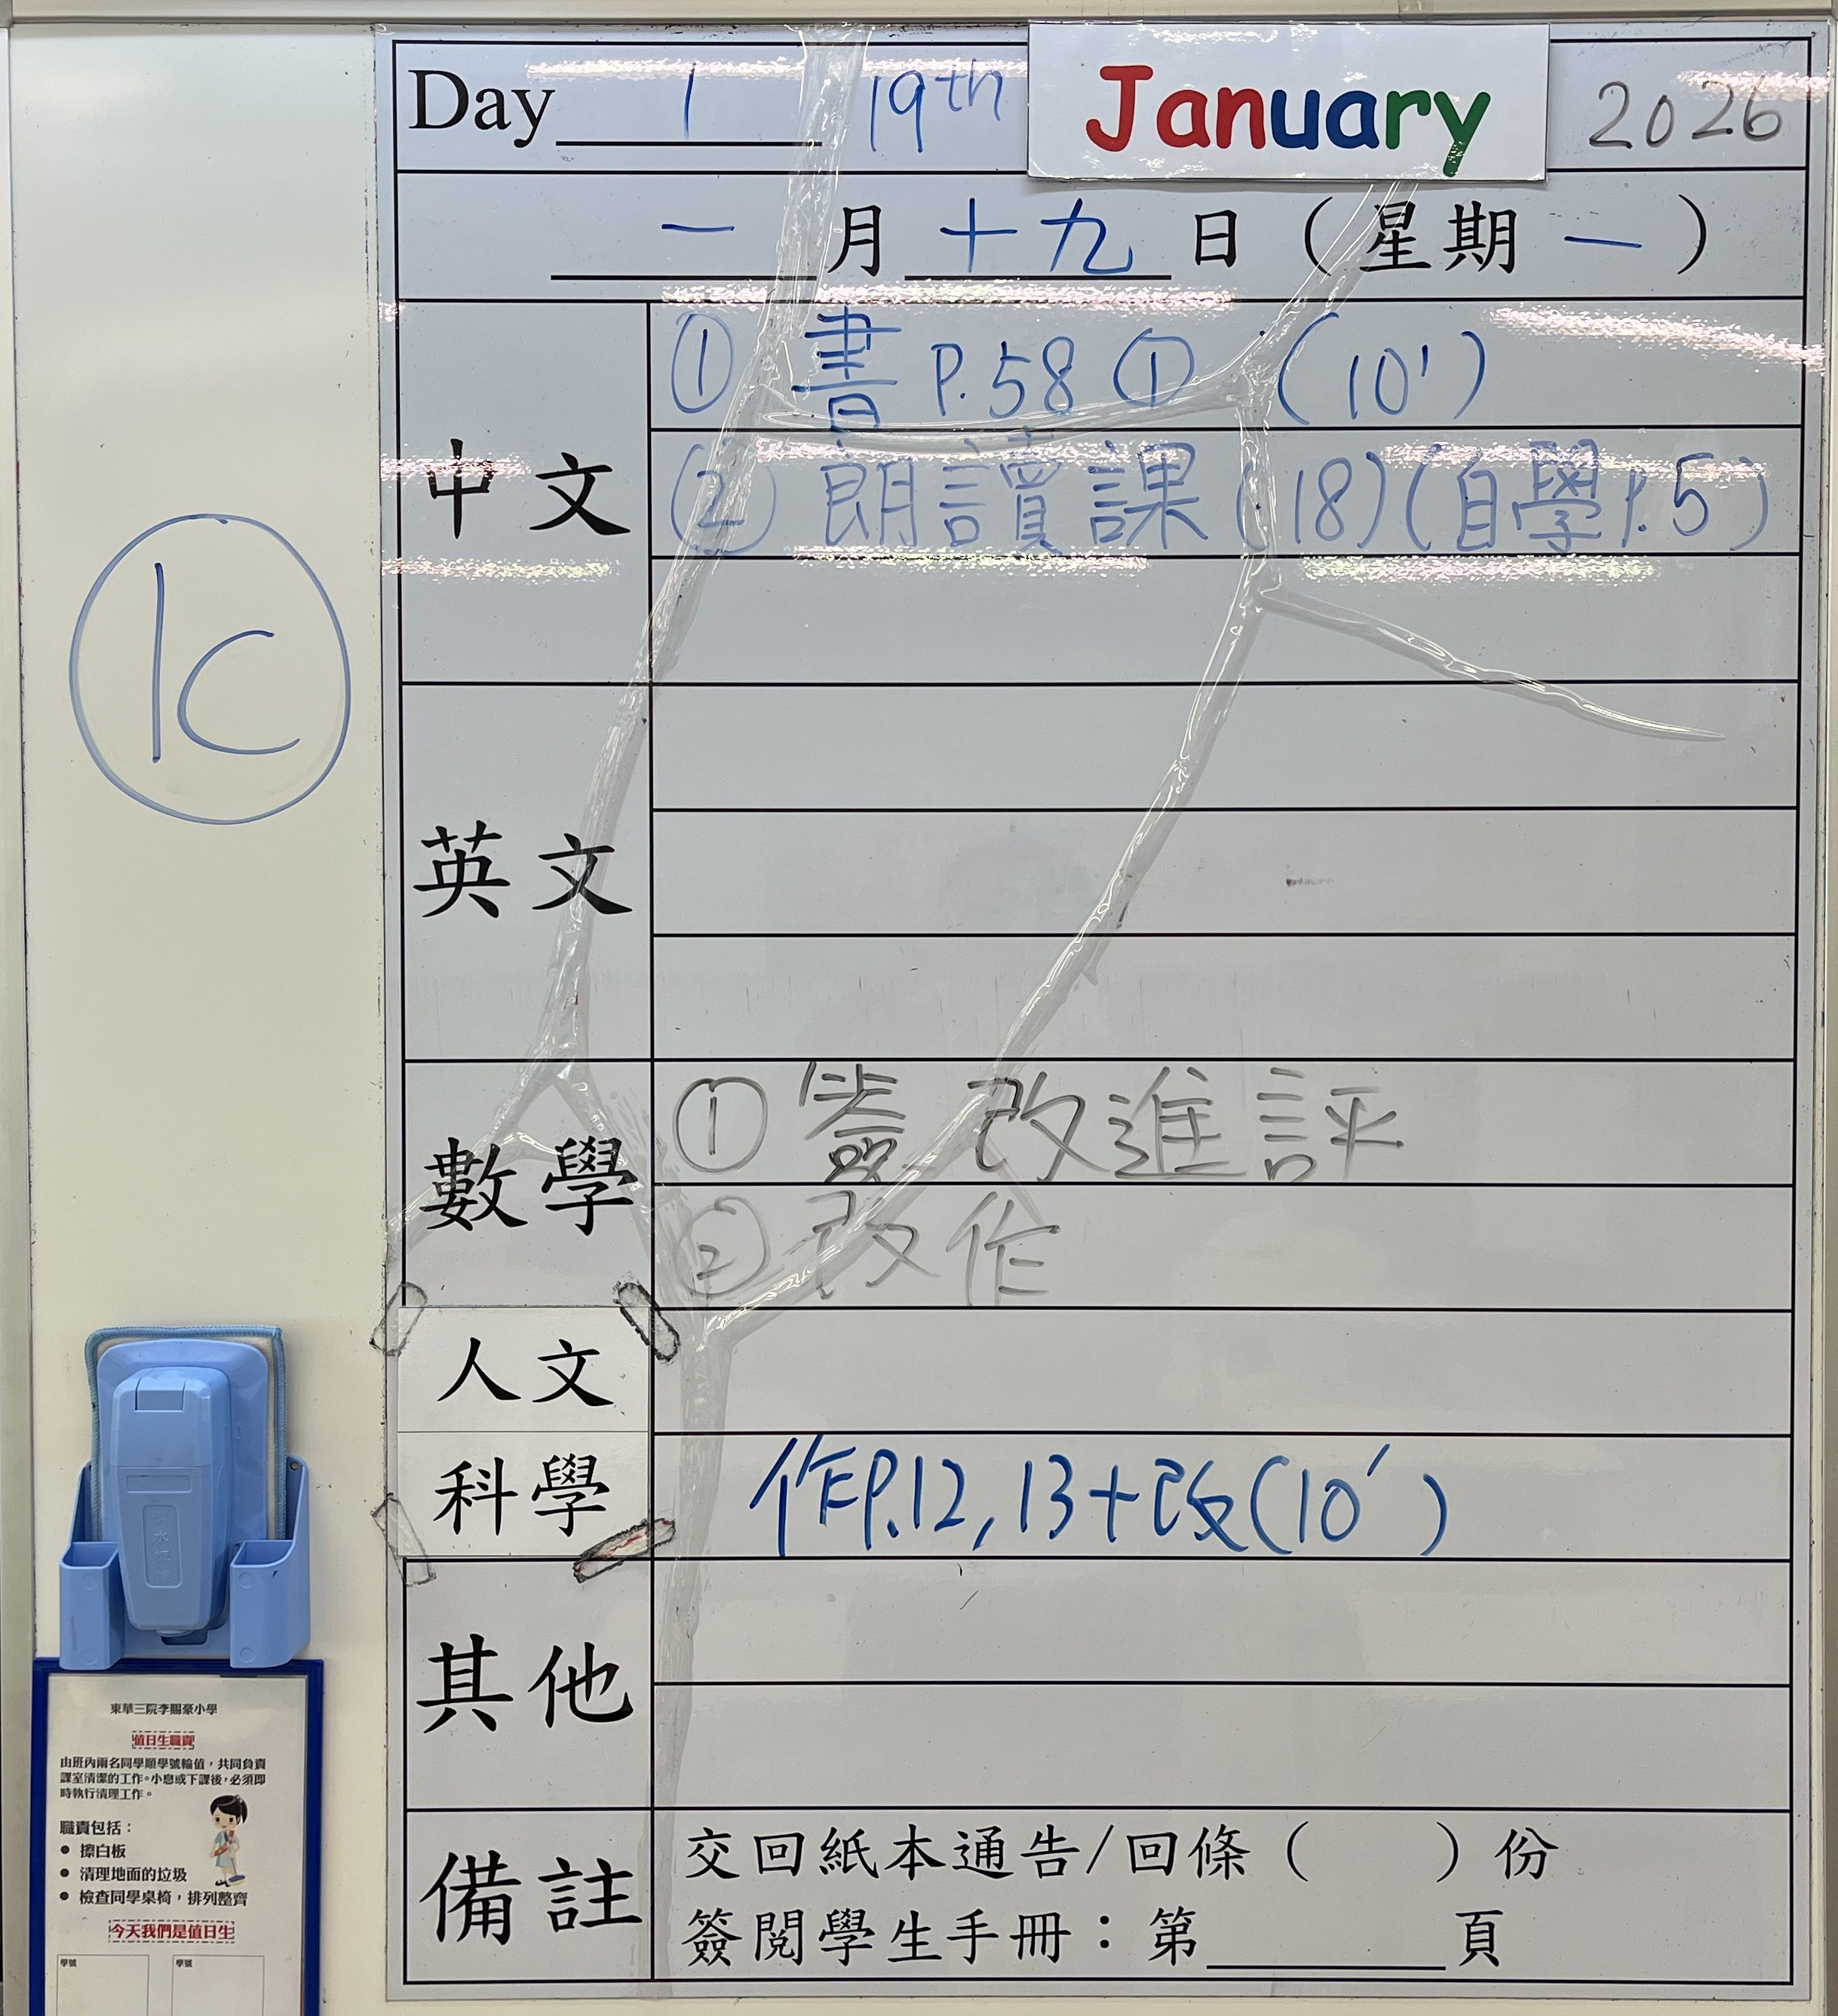 Day 1 19th January 2026
一月十九日（星期一）
1C
中文
① 書 P.58 ① (10')
② 朗讀課(18)(自學P.5)
英文
數學
① 簽 改進評
② 改作
人文
科學
作P.12, 13+改(10')
其他
備註
交回紙本通告/回條（　　）份
簽閱學生手冊：第＿＿＿頁
東華三院李賜豪小學
值日生職責
由班內兩名同學順學號輪值，共同負責
課室清潔的工作。小息或下課後，必須即
時執行清理工作。
職責包括：
● 擦白板
● 清理地面的垃圾
● 檢查同學桌椅，排列整齊
今天我們是值日生
學號 學號